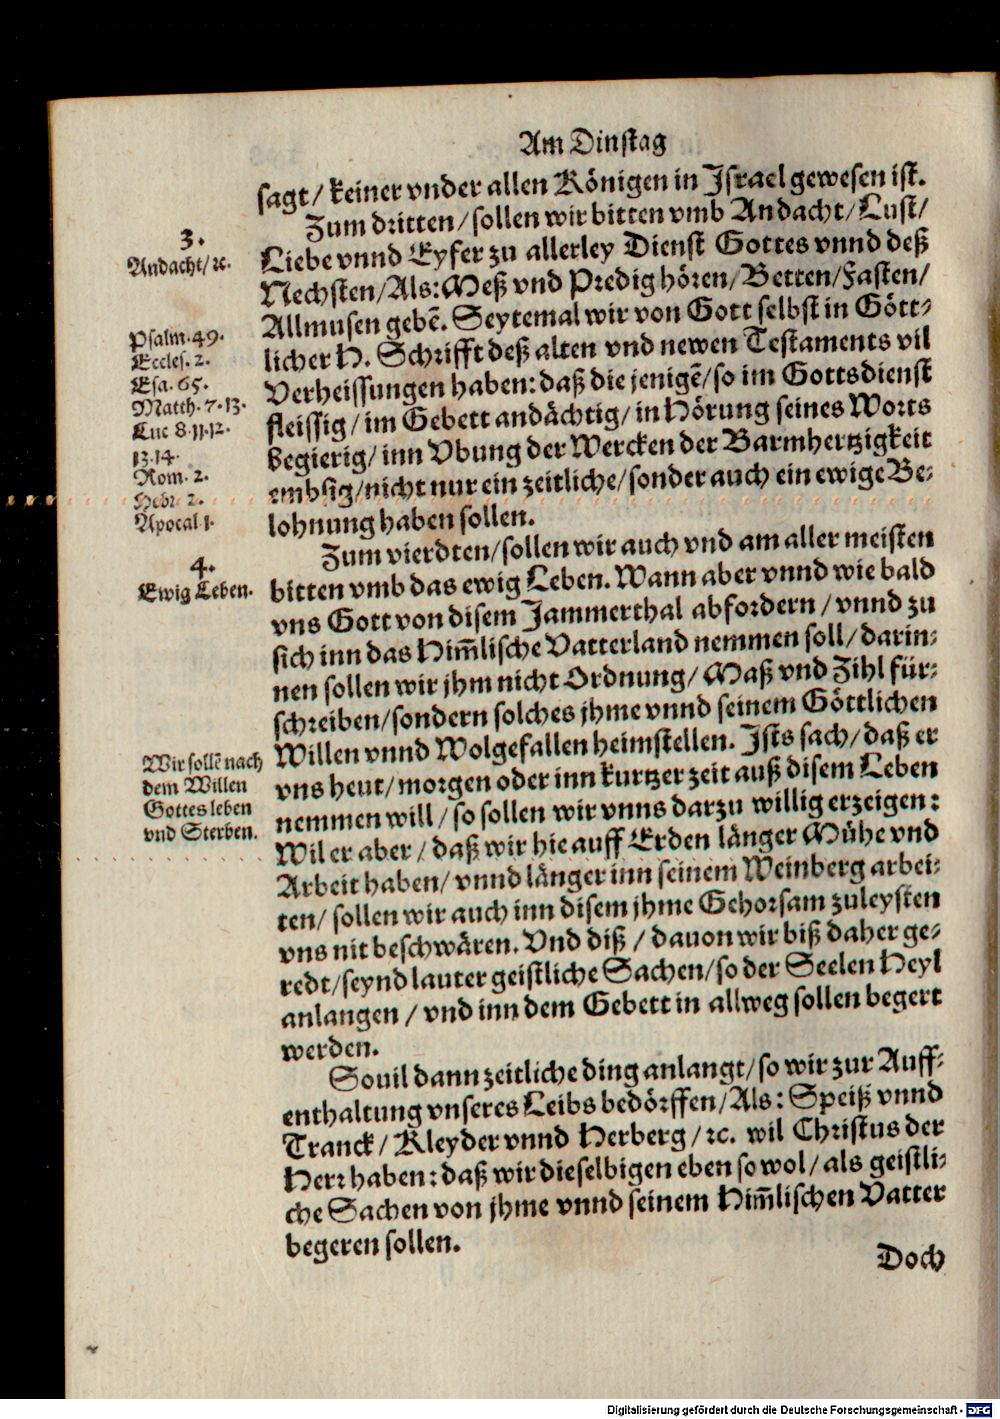 Am Dinstag
sagt / keiner vnder allen Königen in Jsrael gewesen ist.
Zum dritten / sollen wir bitten vmb Andacht / Lust /
Liebe vnnd Eyfer zu allerley Dienst Gottes vnnd deß
Nechsten / Als: Meß vnd Predig hören / Betten / Fasten /
Allmusen gebẽ. Seytemal wir von Gott selbst in Gött-
licher H. Schrifft deß alten vnd newen Testaments vil
Verheissungen haben: daß die jenigẽ / so im Gottsdienst
fleissig / im Gebett andächtig / in Hörung seines Worts
begierig / inn Vbung der Wercken der Barmhertzigkeit
embsig / nicht nur ein zeitliche / sonder auch ein ewige Be-
lohnung haben sollen.
Zum vierdten / sollen wir auch vnd am aller meisten
bitten vmb das ewig Leben. Wann aber vnnd wie bald
vns Gott von disem Jammerthal abfordern / vnnd zu
sich inn das Him̃lische Vatterland nemmen soll / darin-
nen sollen wir jhm nicht Ordnung / Maß vnd Zihl für-
schreiben / sondern solches jhme vnnd seinem Göttlichen
Willen vnnd Wolgefallen heimstellen. Jsts sach / daß er
vns heut / morgen oder inn kurtzer zeit auß disem Leben
nemmen will / so sollen wir vnns darzu willig erzeigen:
Wil er aber / daß wir hie auff Erden länger Mühe vnd
Arbeit haben / vnnd länger inn seinem Weinberg arbei-
ten / sollen wir auch inn disem jhme Gehorsam zuleysten
vns nit beschwären. Vnd diß / dauon wir biß daher ge-
redt / seynd lauter geistliche Sachen / so der Seelen Heyl
anlangen / vnd inn dem Gebett in allweg sollen begert
werden.
Souil dann zeitliche ding anlangt / so wir zur Auff-
enthaltung vnseres Leibs bedörffen / Als: Speiß vnnd
Tranck / Kleyder vnnd Herberg / ꝛc. wil Christus der
Herr haben: daß wir dieselbigen eben so wol / als geistli-
che Sachen von jhme vnnd seinem Him̃lischen Vatter
begeren sollen.
Doch
3.
Andacht / ꝛc.
Psalm. 49.
Eccles. 2.
Esa. 65.
Matth. 7. 13.
Luc 8. 11. 12.
13. 14.
Rom. 2.
Hebr. 2.
Apocal 1.
4.
Ewig Leben.
Wir sollẽ nach
dem Willen
Gottes leben
vnd Sterben.
Digitalisierung gefördert durch die Deutsche Forschungsgemeinschaft - DFG